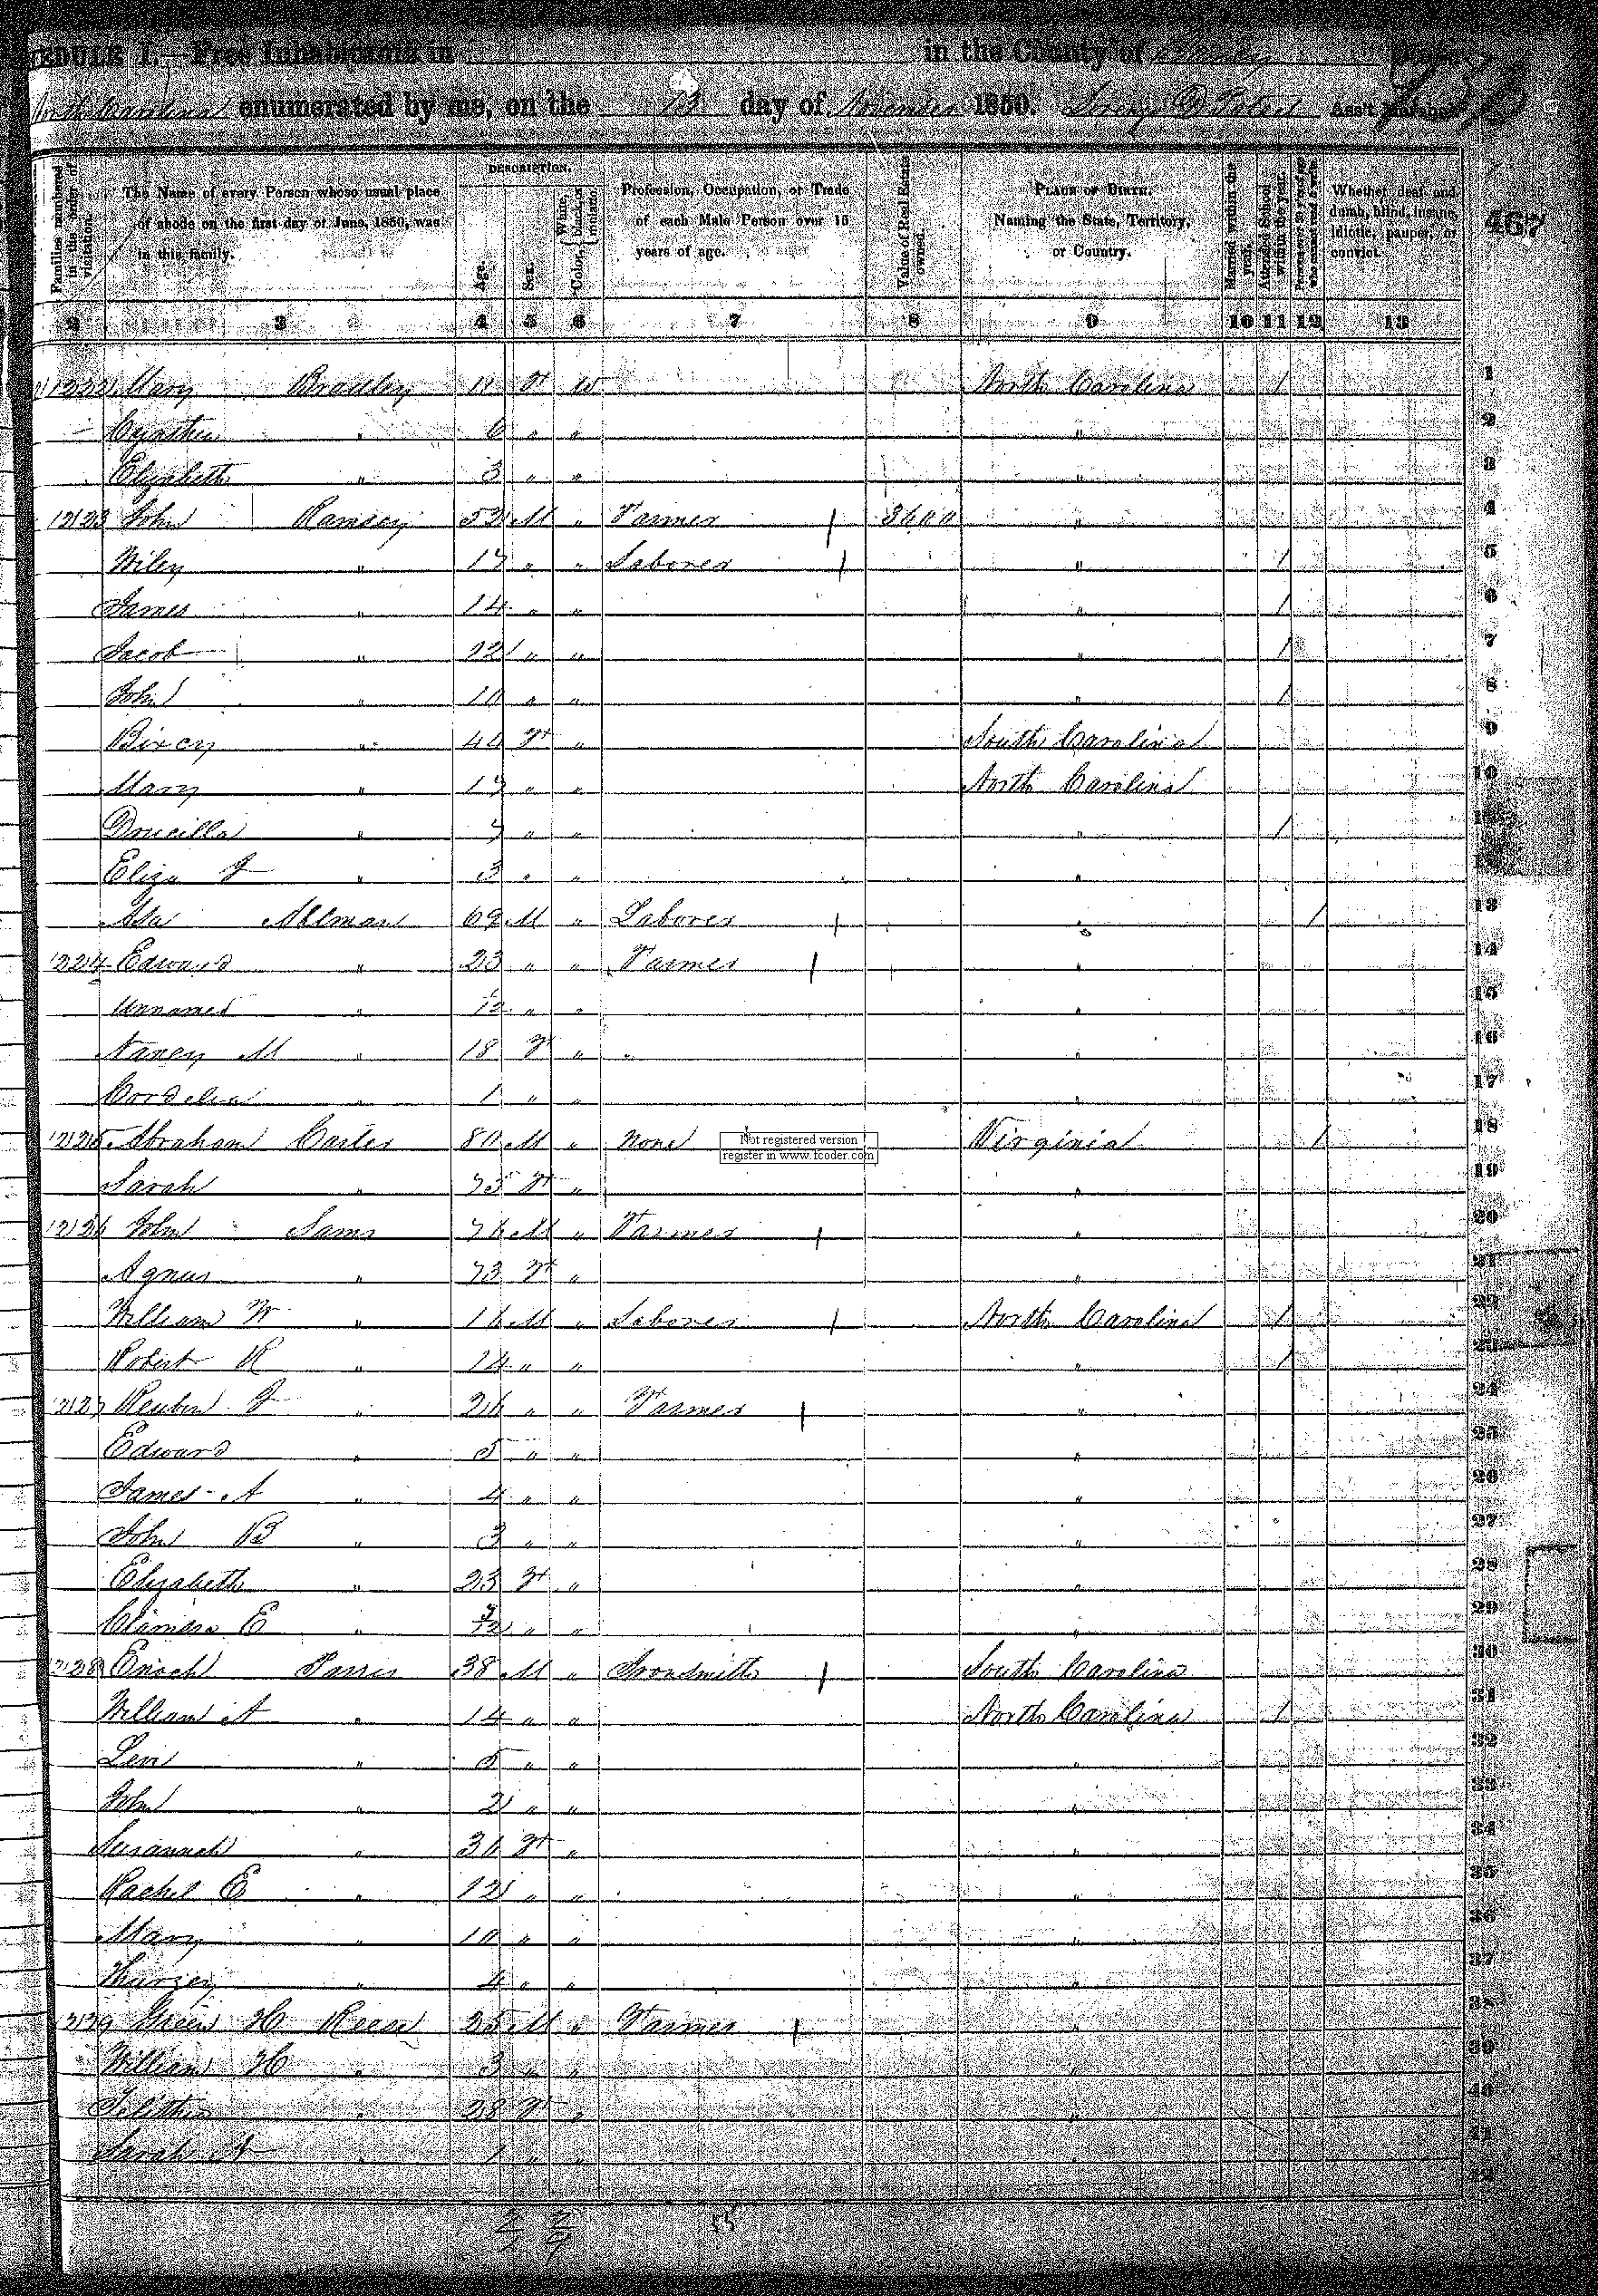 EDULE I.—Free Inhabitants in in the County of
North Carolina enumerated by me, on the 13 day of November 1850. Ass't Marshal
467
Families numbered in the order of visitation.
The Name of every Person whose usual place of abode on the first day of June, 1850, was in this family.
DESCRIPTION.
Age.
Sex.
Color, { White, black, or mulatto.
Profession, Occupation, or Trade of each Male Person over 15 years of age.
Value of Real Estate owned.
PLACE OF BIRTH. Naming the State, Territory, or Country.
Married within the year.
Attended School within the year.
Persons over 20 y'rs of age who cannot read & write.
Whether deaf and dumb, blind, insane, idiotic, pauper, or convict.
2 3 4 5 6 7 8 9 10 11 12 13
1222 Mary Bradley 11 F W North Carolina 1 1
Cynthia " 6 " " " 2
Elizabeth " 3 " " " 3
1223 John Ramsey 52 M " Farmer 3600 " 4
Wiley " 17 " " Laborer " 1 5
James " 14 " " " 1 6
Jacob " 12 " " " 1 7
John " 10 " " " 1 8
" 44 F " South Carolina 9
Mary " 17 " " North Carolina 10
Drucilla " 7 " " " 1
Eliza J " 3 " " "
Asa Allman 69 M " Laborer " 1 13
1224 Edward " 23 " " Farmer " 14
Unnamed " 1/12 " " " 15
Nancy M " 18 F " " " 16
Cordelia " 1 " " " 17
1225 Abraham Carter 80 M " None Virginia 1 18
Not registered version
register in www.fcoder.com
Sarah " 75 F " " 19
1226 John Sams 76 M " Farmer " 20
Agnus " 73 F " " 21
William W " 16 M " Laborer North Carolina 1 22
Robert R " 14 " " " 1 23
1227 Reuben J " 26 " " Farmer " 24
Edward " 5 " " " 25
James A " 4 " " " 26
John B " 3 " " " 27
Elizabeth " 23 F " " 28
E " /12 " " " 29
1228 Enoch 38 M " Ironsmith South Carolina 30
William A " 14 " " North Carolina 1 31
Levi " 5 " " " 32
John " 2 " " " 33
Susannah " 36 F " " 34
Rachel E " 12 " " " 35
Mary " 10 " " " 36
" 4 " " " 37
1229 Green H Reese 25 M " Farmer " 38
William H " 3 " " " 39
" 28 F " " 40
Sarah " 1 " " " 41
42